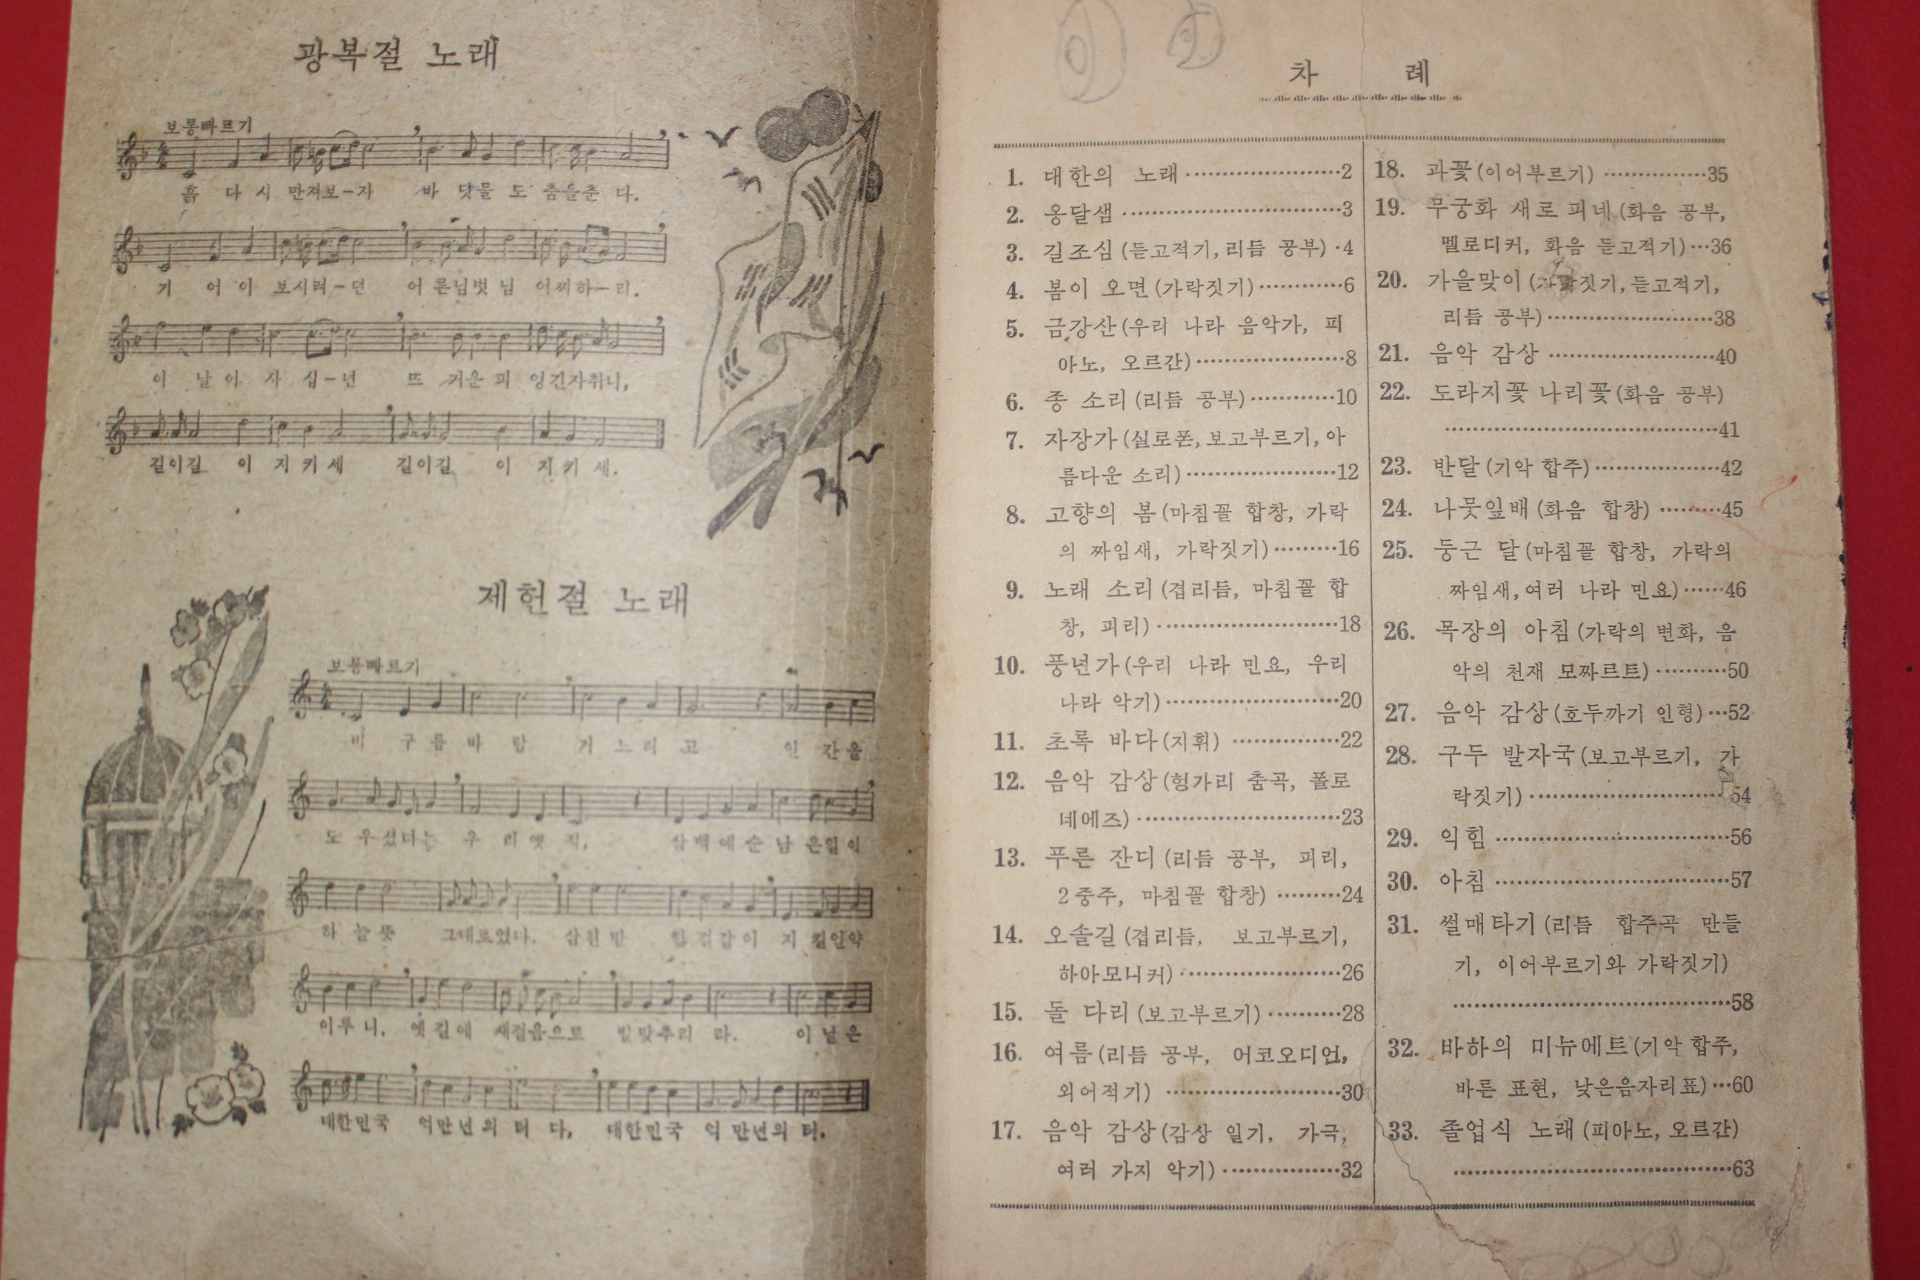 광복절 노래
보통빠르기
흙 다 시 만져보-자 바 닷물 도 춤을춘 다.
기 어 이 보시려-던 어 른님벗 님 어찌하-리.
이 날 이 사 십-년 뜨 거운 피 엉긴자취니,
길이길 이 지 키 세 길이길 이 지 키 세.
제헌절 노래
보통빠르기
비 구 름 바 람 거 느 리 고 인 간을
도 우셨다는 우 리 옛 적, 삼백 예 순 남 은일 이
하 늘 뜻 그대로였다. 삼천만 한결같이 지 킬언약
이루 니, 옛길에 새걸음으로 발맞추리 라. 이 날 은
대한민국 억만년의 터 다, 대한민국 억 만년의 터.
차 례
1. 대한의 노래 ⋯⋯⋯2
2. 옹달샘 ⋯⋯⋯3
3. 길조심 (듣고적기, 리듬 공부) ·4
4. 봄이 오면 (가락짓기) ⋯⋯⋯6
5. 금강산 (우리 나라 음악가, 피
아노, 오르간) ⋯⋯⋯8
6. 종 소리 (리듬 공부) ⋯⋯⋯10
7. 자장가 (실로폰, 보고부르기, 아
름다운 소리) ⋯⋯⋯12
8. 고향의 봄 (마침꼴 합창, 가락
의 짜임새, 가락짓기) ⋯⋯⋯16
9. 노래 소리 (겹리듬, 마침꼴 합
창, 피리) ⋯⋯⋯18
10. 풍년가 (우리 나라 민요, 우리
나라 악기) ⋯⋯⋯20
11. 초록 바다 (지휘) ⋯⋯⋯22
12. 음악 감상 (헝가리 춤곡, 폴로
네에즈) ⋯⋯⋯23
13. 푸른 잔디 (리듬 공부, 피리,
2중주, 마침꼴 합창) ⋯⋯⋯24
14. 오솔길 (겹리듬, 보고부르기,
하아모니커) ⋯⋯⋯26
15. 돌 다리 (보고부르기) ⋯⋯⋯28
16. 여름 (리듬 공부, 어코오디언,
외어적기) ⋯⋯⋯30
17. 음악 감상 (감상 일기, 가극,
여러 가지 악기) ⋯⋯⋯32
18. 과꽃 (이어부르기) ⋯⋯⋯35
19. 무궁화 새로 피네 (화음 공부,
멜로디커, 화음 듣고적기) ⋯36
20. 가을맞이 (가락짓기, 듣고적기,
리듬 공부) ⋯⋯⋯38
21. 음악 감상 ⋯⋯⋯40
22. 도라지꽃 나리꽃 (화음 공부)
⋯⋯⋯41
23. 반달 (기악 합주) ⋯⋯⋯42
24. 나뭇잎배 (화음 합창) ⋯⋯⋯45
25. 둥근 달 (마침꼴 합창, 가락의
짜임새, 여러 나라 민요) ⋯⋯46
26. 목장의 아침 (가락의 변화, 음
악의 천재 모짜르트) ⋯⋯⋯50
27. 음악 감상 (호두까기 인형) ⋯52
28. 구두 발자국 (보고부르기, 가
락짓기) ⋯⋯⋯54
29. 익힘 ⋯⋯⋯56
30. 아침 ⋯⋯⋯57
31. 썰매타기 (리듬 합주곡 만들
기, 이어부르기와 가락짓기)
⋯⋯⋯58
32. 바하의 미뉴에트 (기악 합주,
바른 표현, 낮은음자리표) ⋯60
33. 졸업식 노래 (피아노, 오르간)
⋯⋯⋯63